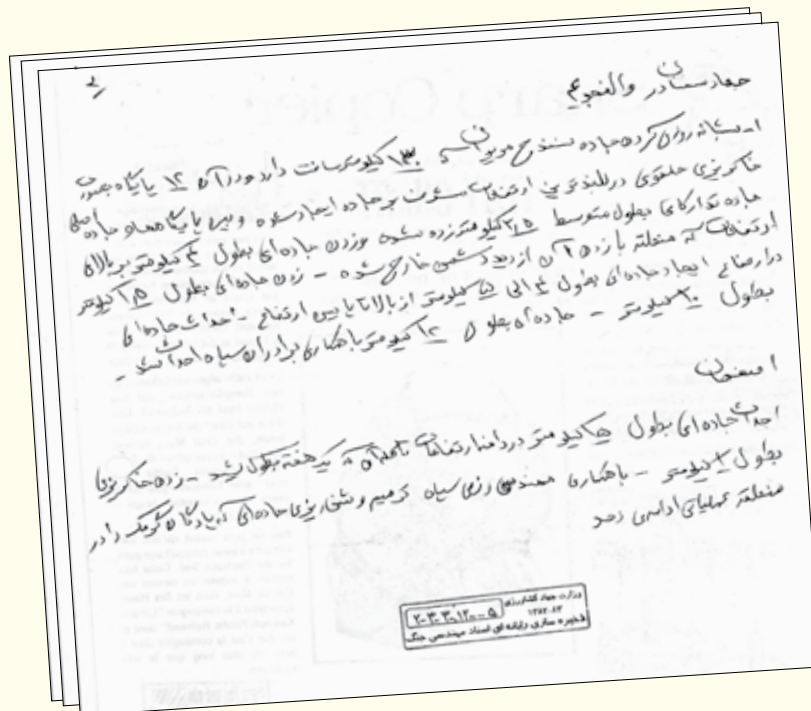 جهاد سمنان در والفجر ۴
۱- شبانه روزی کردن جاده سنندج مریوان که ۱۳۰ کیلومتر مسافت دارد و در آن ۱۲ پایگاه بصورت
خاکریزی حلقوی در بلندترین ارتفاعات مشرف بر جاده ایجاد شده و بین پایگاهها و جاده اصلی
جاده تدارکاتی بطول متوسط ۲/۵ کیلومتر زده شده و زدن جاده‌ای بطول ۴ کیلومتر بر بالای
ارتفاعات که منطقه با زدن آن از دید دشمن خارج شده - زدن جاده‌ای بطول ۱/۵ کیلومتر
در ارتفاع ایجاد جاده‌ای بطول ۴ الی ۵ کیلومتر از بالا تا پایین ارتفاع - احداث جاده‌ای
بطول ۲۰ کیلومتر - جاده‌ای بطول ۱۲ کیلومتر با همکاری برادران سپاه احداث شد -
اصفهان
احداث جاده‌ای بطول کیلومتر در دامنه ارتفاعات تا که یک هفته بطول کشید - زدن خاکریزی
بطول ۲ کیلومتر - با همکاری مهندسی رزمی سپاه ترمیم و شن ریزی جاده‌ای که پادگان گرمک را در
منطقه عملیاتی
وزارت جهاد کشاورزی
۱۳۸۲-۸۳
۲۰۳۰۳۰۱۲۰۰۵
ذخیره سازی رایانه ای اسناد مهندسی جنگ